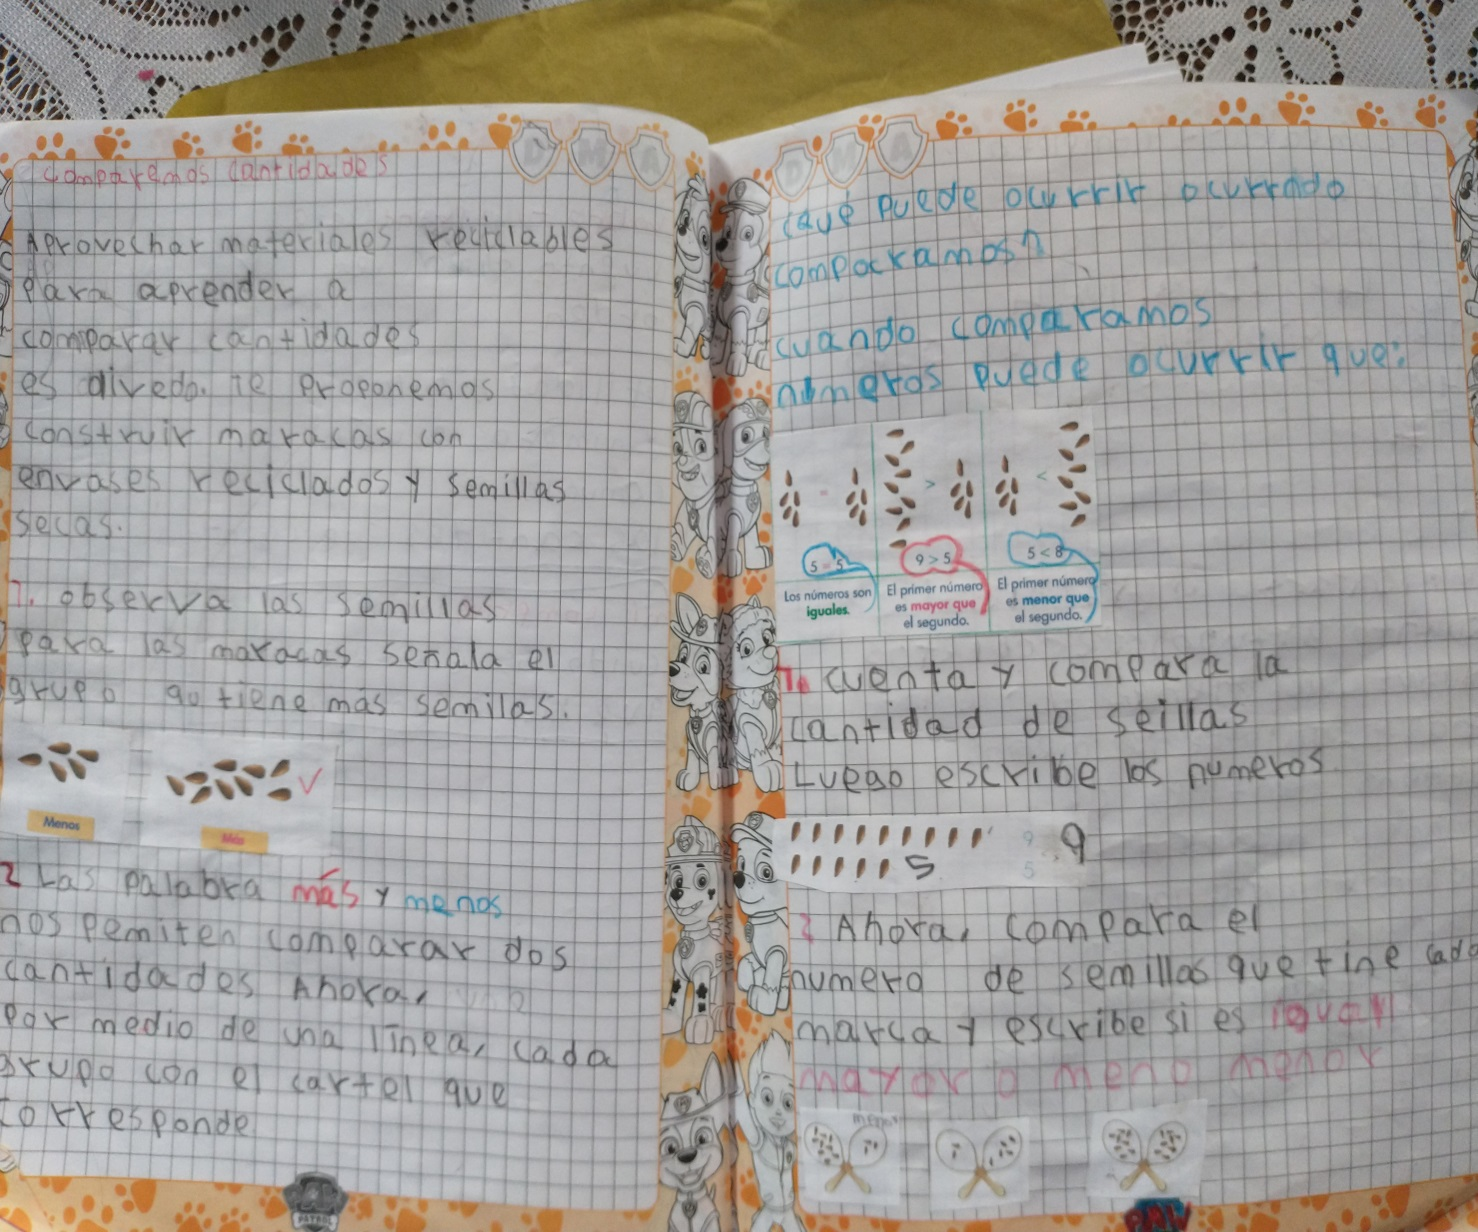 comparemos cantidades
Aprovechar materiales reciclables
para aprender a
comparar cantidades
es divedo. Te proponemos
construir maracas con
envases reciclados y semillas
secas.
1. observa las semillas
para las maracas señala el
grupo qo tiene más semillas.
Menos
Más
2 Las palabra más y menos
nos pemiten comparar dos
cantidades Ahora,
por medio de una línea, cada
grupo con el cartel que
corresponde
D M A
¿qué puede ocurrir ocurrndo
comparamos?
cuando comparamos
números puede ocurrir que:
= > <
5 = 5 9 > 5 5 < 8
Los números son iguales.
El primer número es mayor que el segundo.
El primer número es menor que el segundo.
1. cuenta y compara la
cantidad de seillas
Luego escribe los numeros
9 9
5 5
Ahora, compara el
numero de semillas que tine cada
marca y escribe si es igual
mayor o meno menor
menor
PATROL
PAW